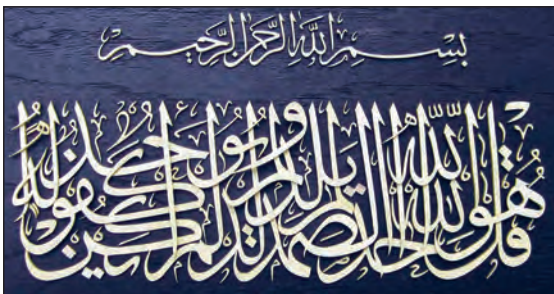 بِسْمِ اللَّهِ الرَّحْمَنِ الرَّحِيمِ
قل هو الله احد الله الصمد لم يلد ولم يولد ولم يكن له كفوا احد